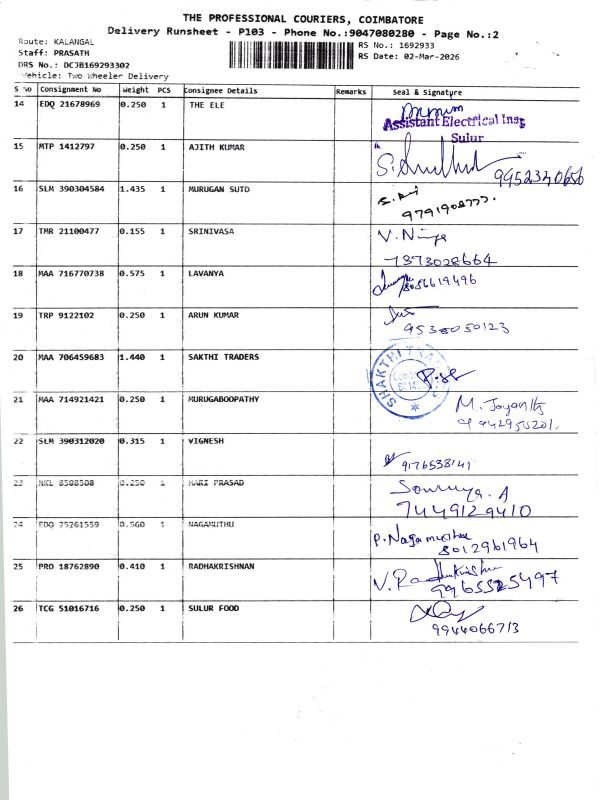 THE PROFESSIONAL COURIERS, COIMBATORE
Delivery Runsheet - P103 - Phone No.:9047080280 - Page No.:2
Route: KALANGAL
Staff: PRASATH
DRS No.: DCJB169293302
Vehicle: Two Wheeler Delivery
RS No.: 1692933
RS Date: 02-Mar-2026
S No Consignment No Weight PCS Consignee Details Remarks Seal & Signature
14 EDQ 21678969 0.250 1 THE ELE
Assistant Electrical Insp
Sulur
15 MTP 1412797 0.250 1 AJITH KUMAR
9952340656
16 SLM 390304584 1.435 1 MURUGAN SUTO
9791908777.
17 TMR 21100477 0.155 1 SRINIVASA
7373028664
18 MAA 716770738 0.575 1 LAVANYA
8056619496
19 TRP 9122102 0.250 1 ARUN KUMAR
9538050123
20 MAA 706459683 1.440 1 SAKTHI TRADERS
SHAKTHI
21 MAA 714921421 0.250 1 MURUGABOOPATHY
M. Jayanth
22 SLM 390312020 0.315 1 VIGNESH
9176538141
23 NKL 8508508 0.250 1 HARI PRASAD
Sowmya. A
7449129410
24 EDQ 25261559 0.560 1 NAGAMUTHU
P. Nagamuthu
8012961964
25 PRO 18762890 0.410 1 RADHAKRISHNAN
V. Radhakrishnan
9965525497
26 TCG 51016716 0.250 1 SULUR FOOD
9944066713